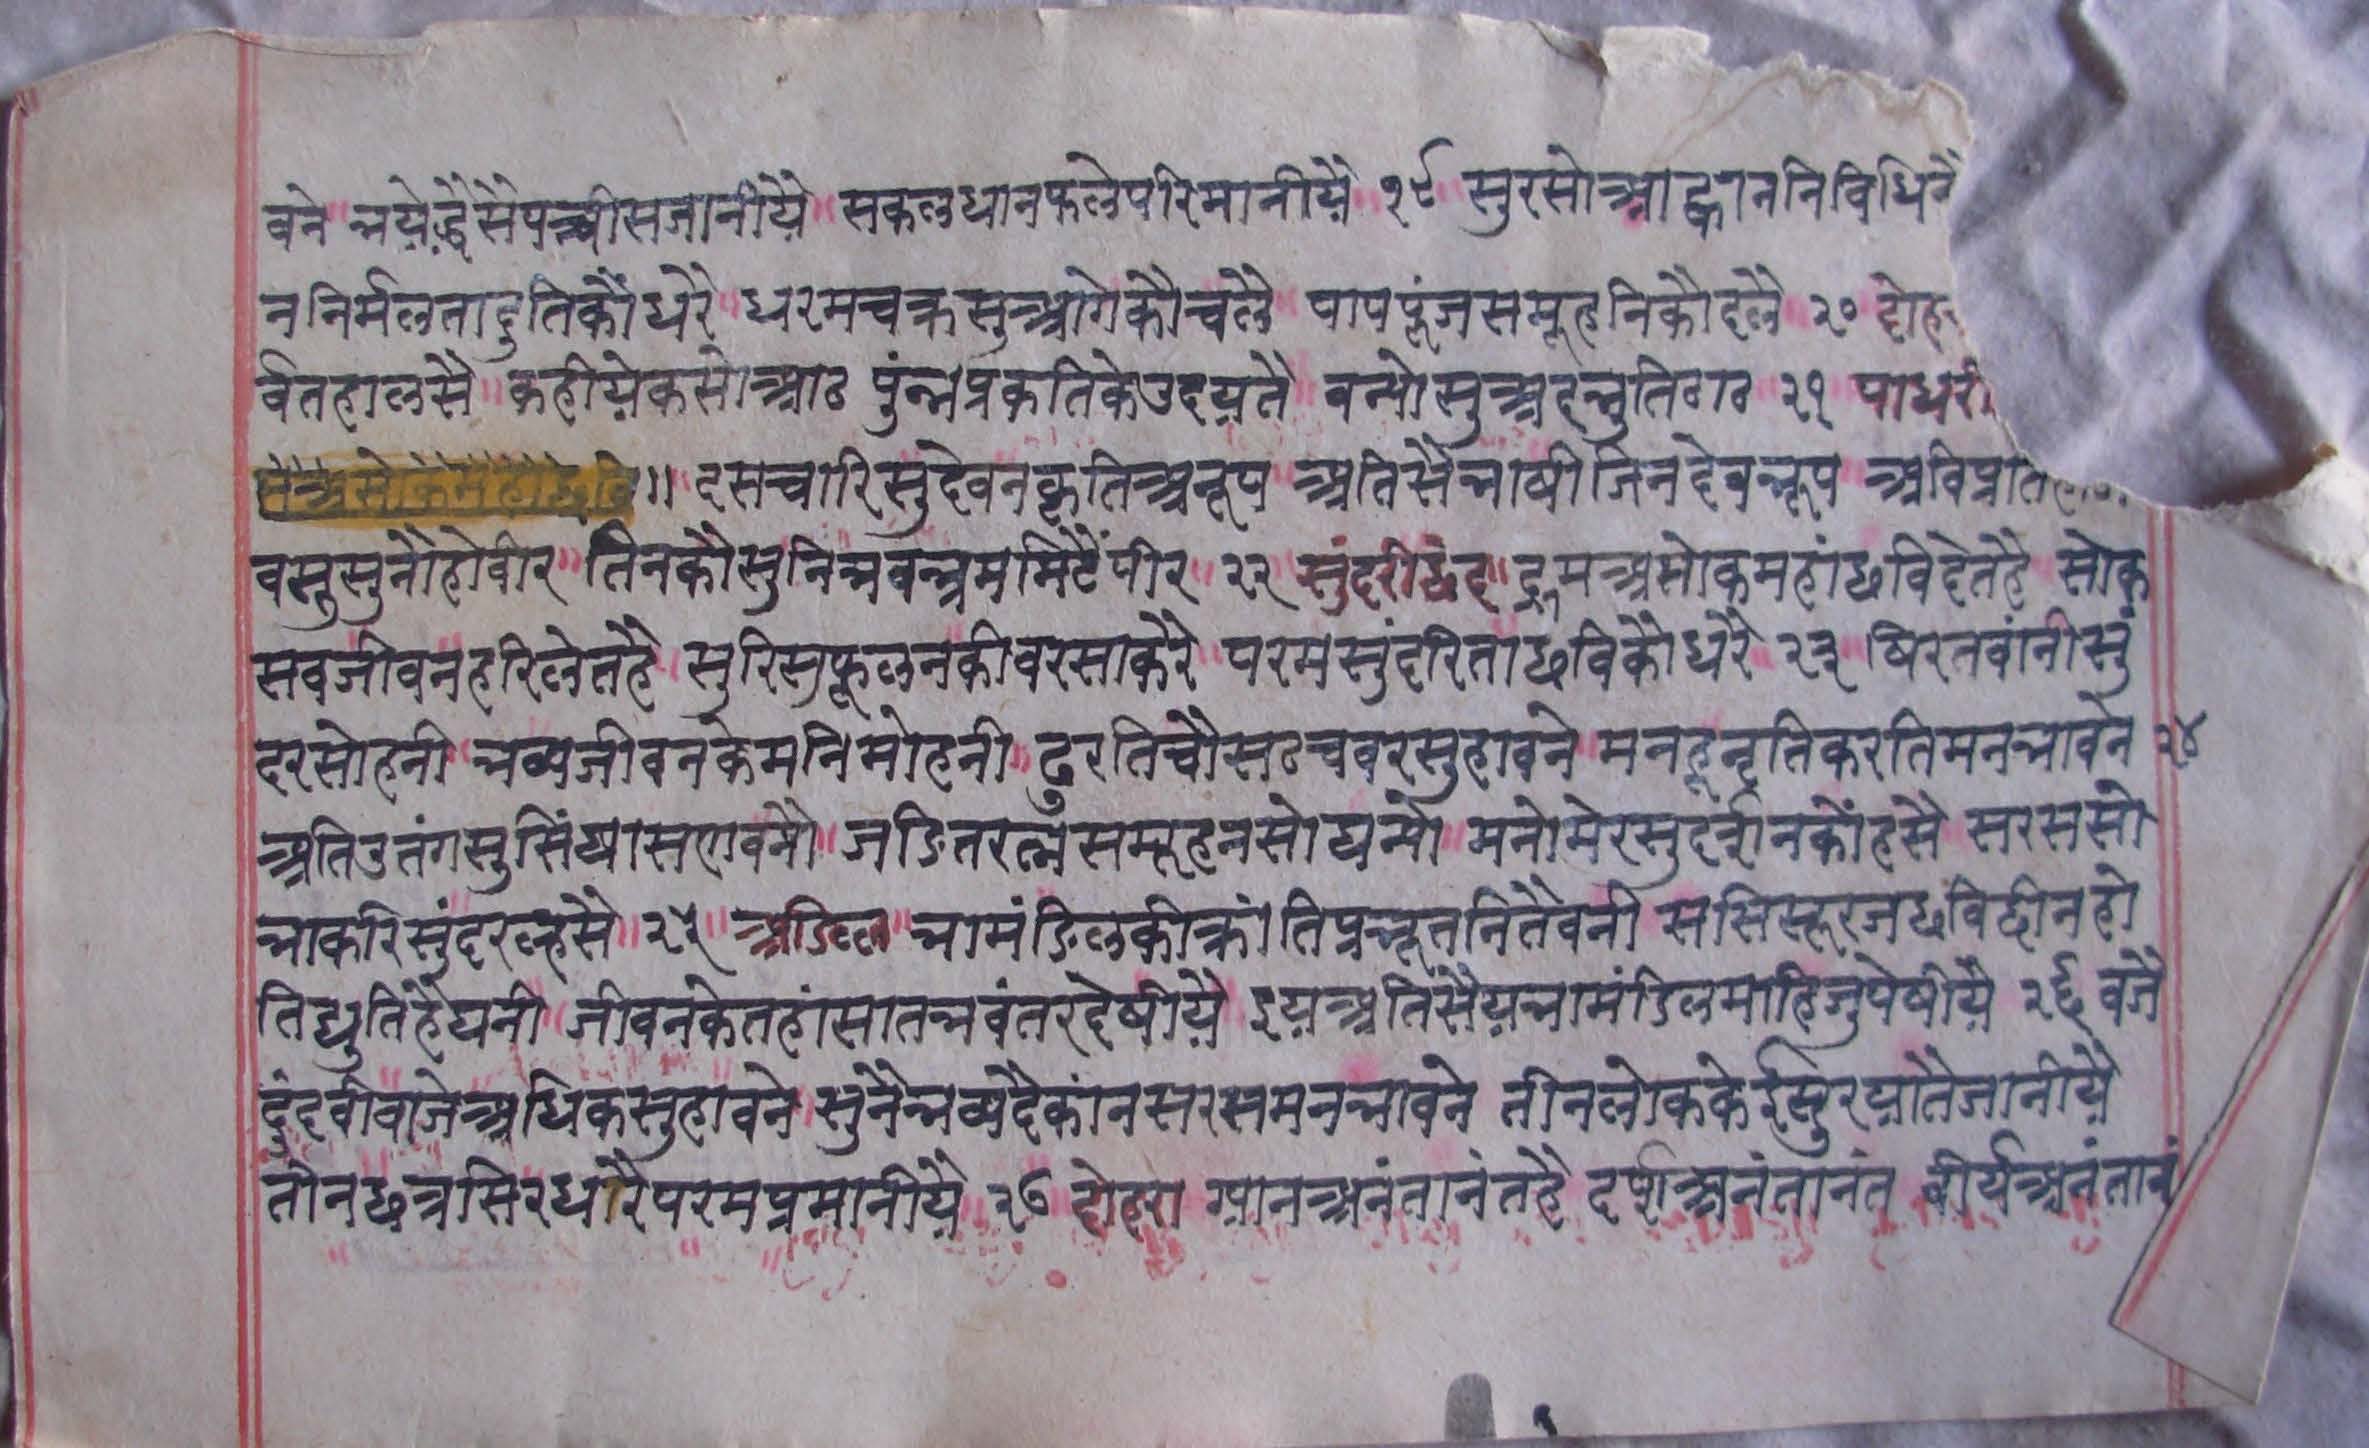 वने भये द्वैसेपच्चीसजानीयै ॥ सकलधानफलेपरिमानीयै १९ सुरसोआह्वाननिविधि
ननिर्मलतादुतिकौंधरै ॥ धरमचक्रसुआगेकौचलै पापपूंजसमूहनिकौदलै २०
र्वतहालसै ॥ कहीयेकसोआठ पुंन्यप्रकतिकेउदयतै वन्योसुअदभुतिठाठ २१ पाधरी
॥ दसचारिसुदेवनकृतिअनूप अतिसैभाषीजिनदेवभूप
वसुसुनौहोवीर ॥ तिनकौसुनिभवभ्रममिटैंपीर ॥ २२ सुंदरीछंद ॥ द्रुमअसोकमहांछविदेतहै सोक
सवजीवनहरिलेतहै ॥ सुरिसुफूलनकीवरसाकरै परमसुंदरिताछविकौधरै २३ षिरतवांनीसुं
दरसोहनी भव्यजीवनकेमनिमोहनी ॥ दुरतिचौसठचवरसुहावने मनहूनृतिकरतिमनभावने २४
अतिउतंगसुसिंघासणवनौ ॥ जडितरत्नसमूहनसोघन्यो मनोमेरसुदर्शनकौंहसै सरससो
भाकरिसुंदरल्हसै ॥ २५ ॥ अडिल्ल ॥ भामंडिलकीक्रांतिप्रभूतनितैवनी ससिस्हूरजछविछीनहो
तिद्युतिहैघनी ॥ जीवनकेतहांसातभवंतरदेषीयै इयअतिसैयभामंडिलमाहिजुपेषीयै २६ वजै
दुंदवीवाजेअधिकसुहावने सुनैभव्यदैकांनसरसमनभावने तीनलोककेईसुरयातैजानीयै
तीनछत्रसिरधारैपरमप्रमानीयै २७ दोहरा ग्यानअनंतानंतहै दर्षाअनंतानंत वीर्यअनंतानं